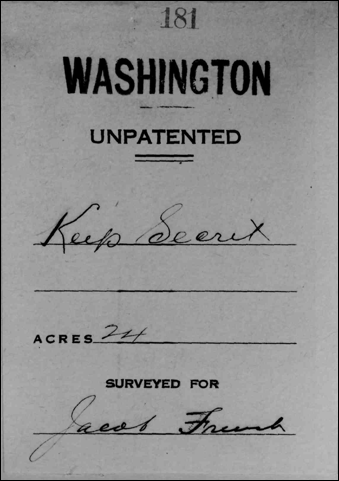 181
WASHINGTON
UNPATENTED
Keep Secret
ACRES 24
SURVEYED FOR
Jacob French